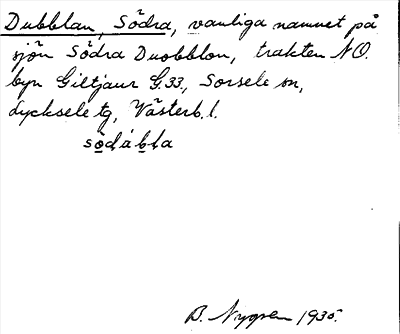 Dubblan, Södra, vanliga namnet på
sjön Södra Duobblon, trakten NO.
byn Giltjaur G.33., Sorsele sn,
Lycksele tg, Västerb. l.
sö̀dá bla
B. Nygren 1935.